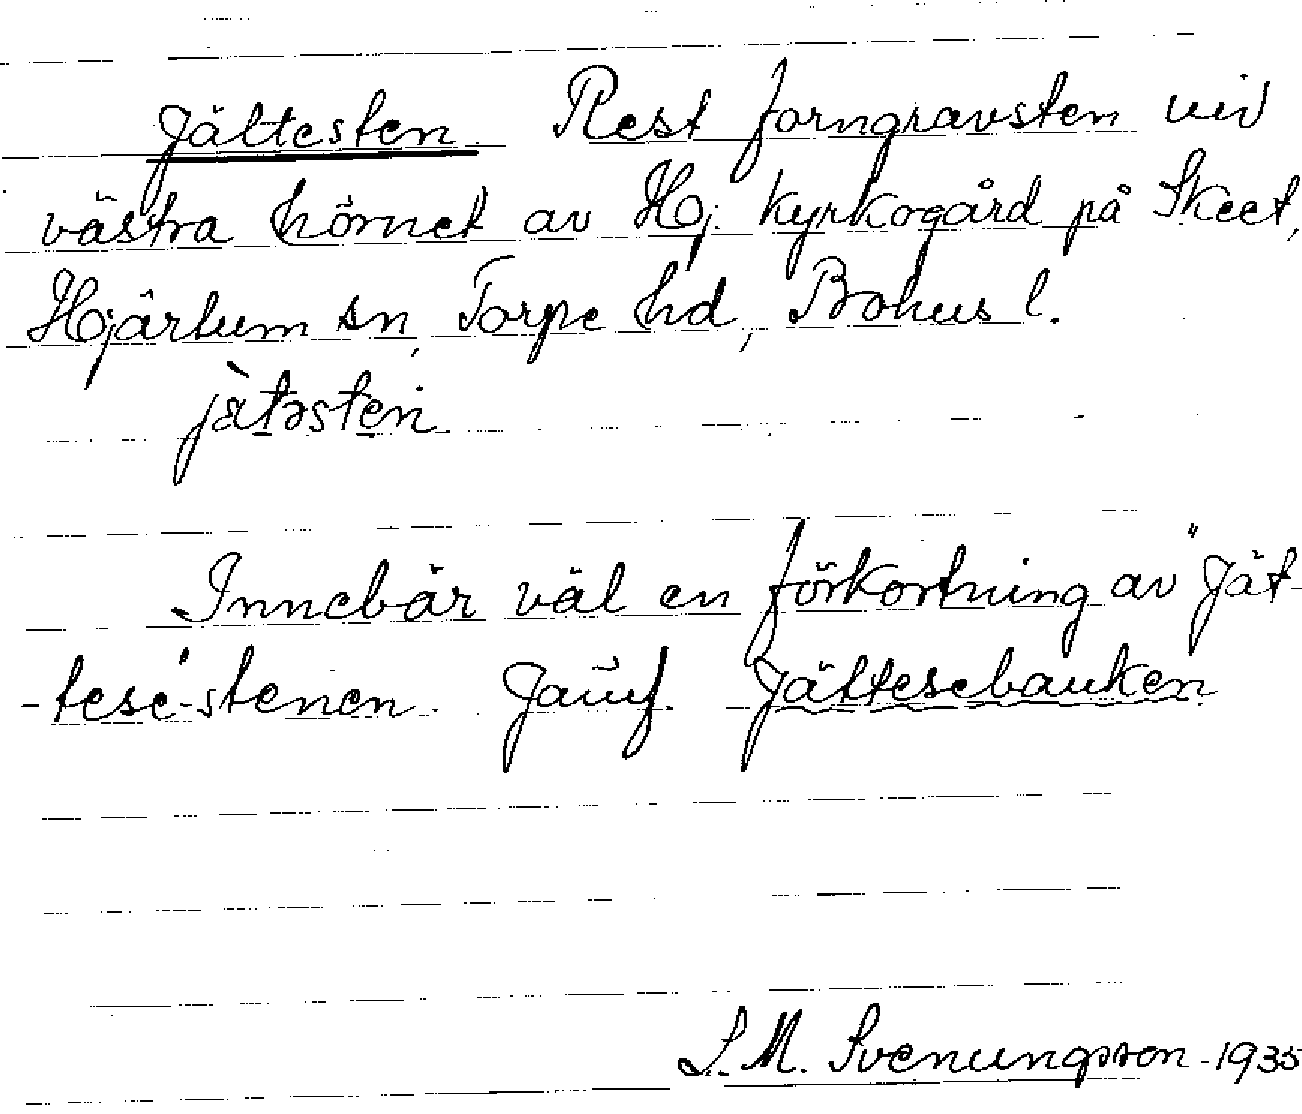 Jättesten. Rest forngravsten vid
västra hörnet av Hj. kyrkogård på Skeet,
Hjärtum sn, Torpe hd, Bohus l.
jàtəsten
Innebär väl en förkortning av "Jät-
-tese"-stenen. Jämf. Jättesebauken
S. M. Svenungsson -1935